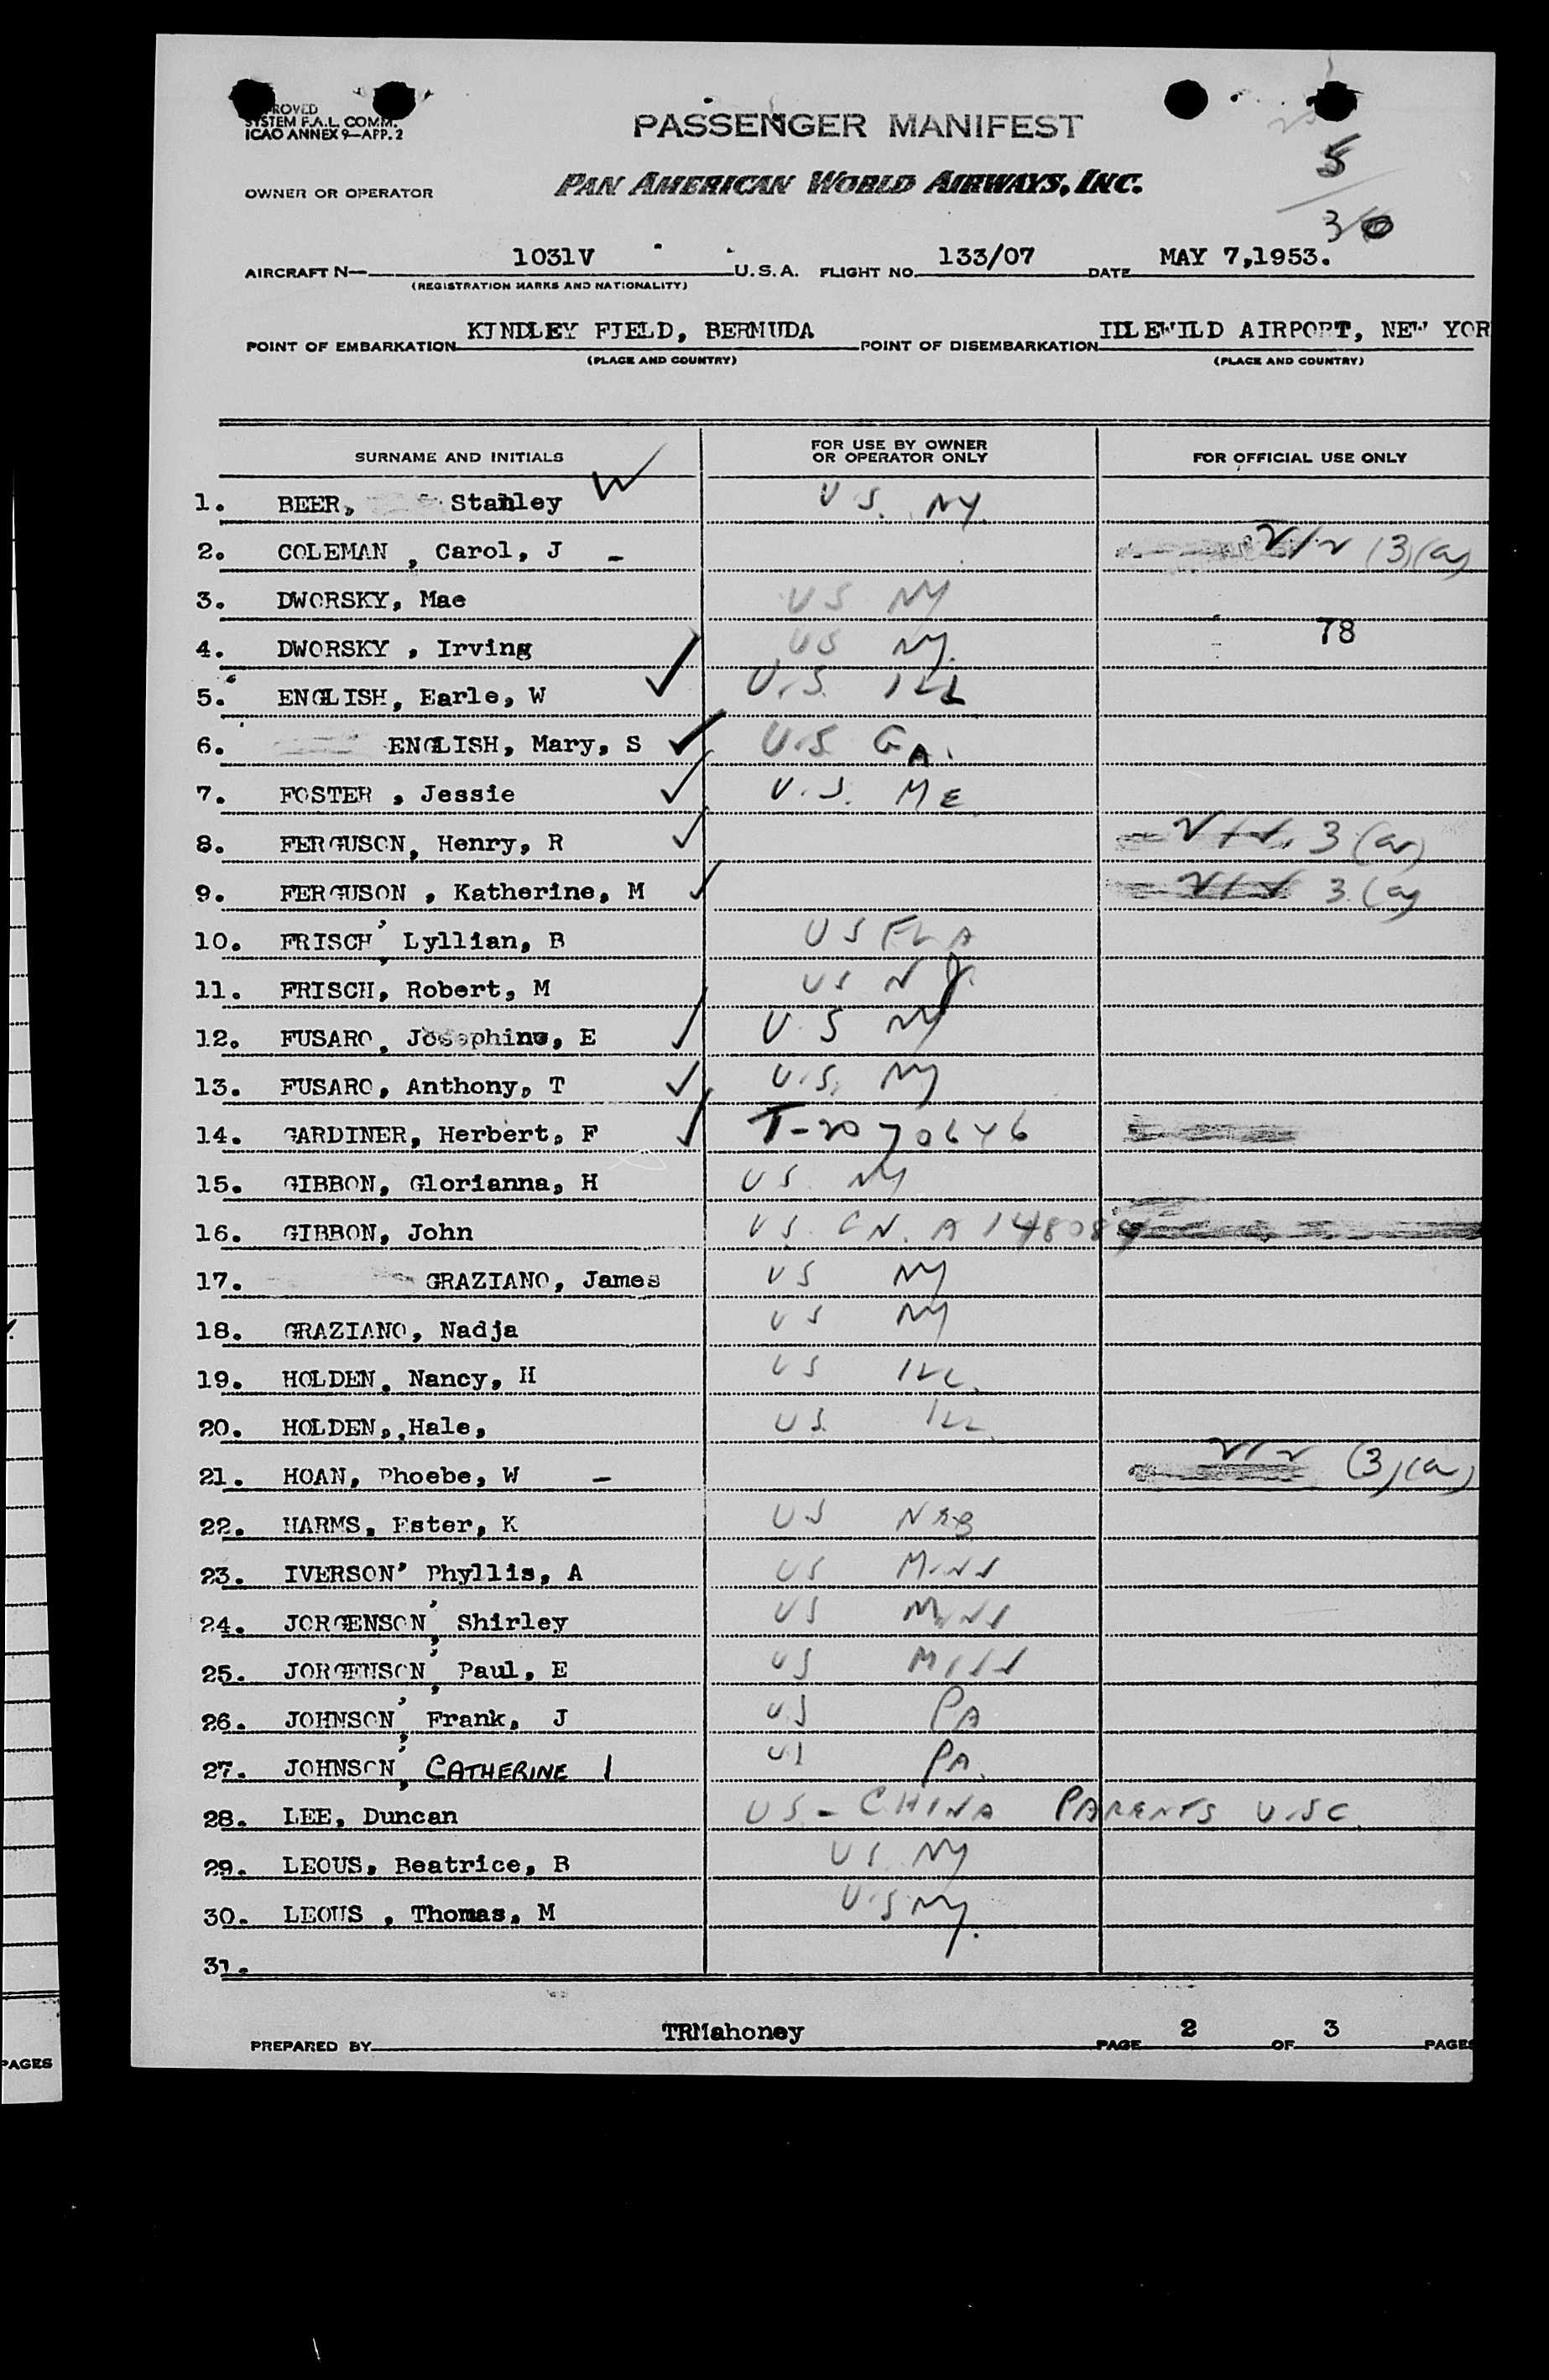 ROVED
SYSTEM F.A.L. COMM.
ICAO ANNEX 9—APP. 2
PASSENGER MANIFEST
5
OWNER OR OPERATOR PAN AMERICAN WORLD AIRWAYS, INC.
30
AIRCRAFT N— 1031V U.S.A. FLIGHT NO. 133/07 DATE MAY 7,1953.
(REGISTRATION MARKS AND NATIONALITY)
POINT OF EMBARKATION KINDLEY FIELD, BERMUDA POINT OF DISEMBARKATION IDLEWILD AIRPORT, NEW YOR
(PLACE AND COUNTRY) (PLACE AND COUNTRY)
SURNAME AND INITIALS FOR USE BY OWNER OR OPERATOR ONLY FOR OFFICIAL USE ONLY
1. BEER, Stanley U S. NY.
2. COLEMAN , Carol, J - (3)(a)
3. DWORSKY, Mae US NY
78
4. DWORSKY , Irving US NY.
5. ENGLISH, Earle, W U.S. ILL
6. ENGLISH, Mary, S U.S GA.
7. FOSTER , Jessie U.S. ME
8. FERGUSON, Henry, R 3(a)
9. FERGUSON , Katherine, M 3(a)
10. FRISCH, Lyllian, B US FLA
11. FRISCH, Robert, M US N
12. FUSARO, Josephine, E U.S NY
13. FUSARO, Anthony, T U.S. NY
14. GARDINER, Herbert, F T-2070646
15. GIBBON, Glorianna, H US NY
16. GIBBON, John US CN. A 148089
17. GRAZIANO, James US NY
18. GRAZIANO, Nadja US NY
19. HOLDEN, Nancy, H US ILL.
20. HOLDEN,,Hale, US. ILL.
21. HOAN, Phoebe, W - (3)(a)
22. HARMS, Ester, K US NEB
23. IVERSON' Phyllis, A US MINN
24. JORGENSON, Shirley US MINN
25. JORGENSON, Paul, E US
26. JOHNSON, Frank, J US PA
27. JOHNSON, CATHERINE I US PA.
28. LEE, Duncan US - CHINA PARENTS U.S.C.
29. LEOUS, Beatrice, B US NY
30. LEOUS , Thomas, M U.S NY.
31.
PREPARED BY TRMahoney PAGE 2 OF 3 PAGES
PAGES